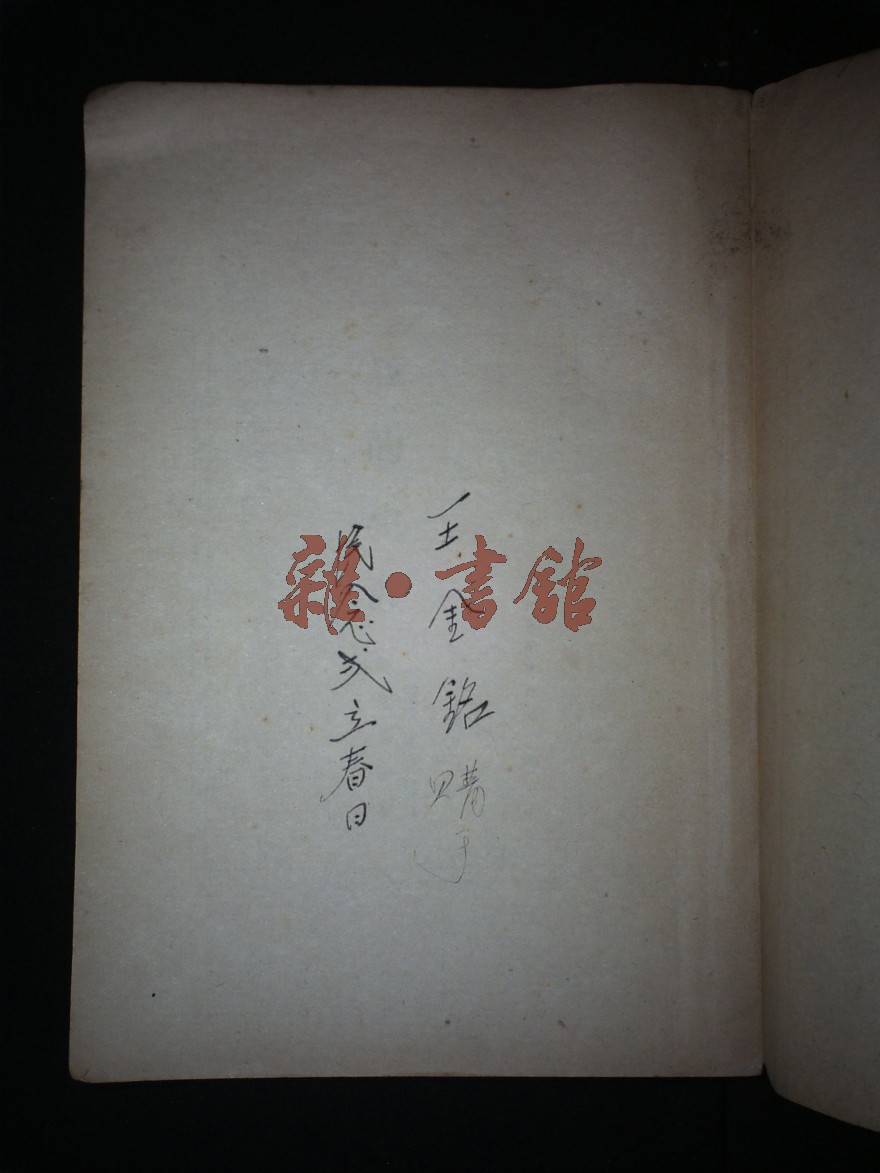 王金銘購于
民念弍立春日
雜·書館